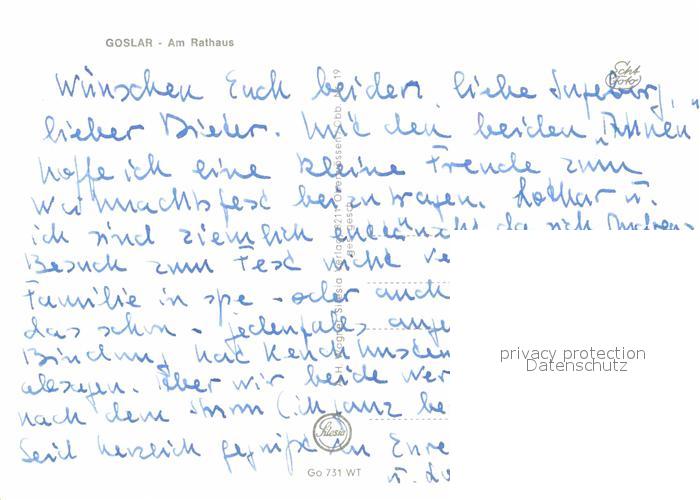 GOSLAR - Am Rathaus
Echt Foto
Wünschen Euch beiden, liebe Ingeborg,
lieber Dieter. Mit den beiden "Ahnen"
hoffe ich eine kleine Freude zum
Weihnachtsfest beizutragen. Lothar u.
ich sind ziemlich enttäuscht, da sich
Besuch zum Fest nicht
Familie in spe - oder auch
das schon - jedenfalls
Bindung hat Keuchhusten
absagen. Aber wir beide
nach dem Sturm (ich ganz
Seid herzlich gegrüßt
u.
Silesia
Go 731 WT
privacy protection
Datenschutz